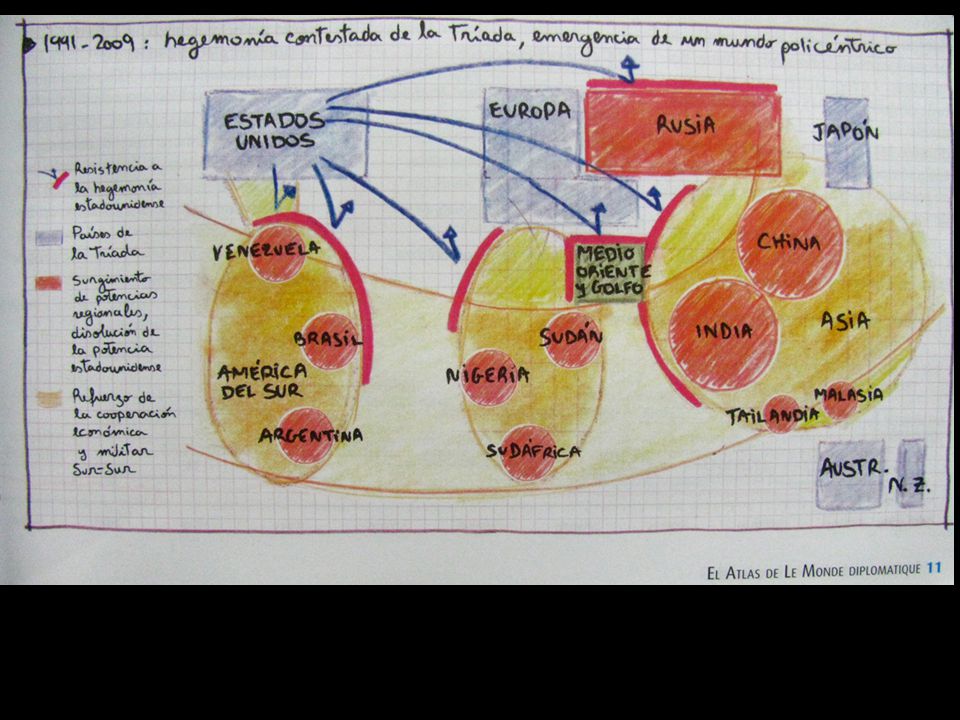 1991-2009: hegemonía contestada de la Tríada, emergencia de un mundo policéntrico
ESTADOS
UNIDOS
EUROPA
RUSIA
JAPÓN
Resistencia a
la hegemonía
estadounidense
Países de
la Tríada
Surgimiento
de potencias
regionales,
disolución de
la potencia
estadounidense
Refuerzo de
la cooperación
económica
y militar
Sur-Sur
VENEZUELA
BRASIL
AMÉRICA
DEL SUR
ARGENTINA
MEDIO
ORIENTE
y GOLFO
SUDÁN
NIGERIA
SUDÁFRICA
CHINA
INDIA
ASIA
MALASIA
TAILANDIA
AUSTR.
N.Z.
EL ATLAS DE LE MONDE DIPLOMATIQUE 11